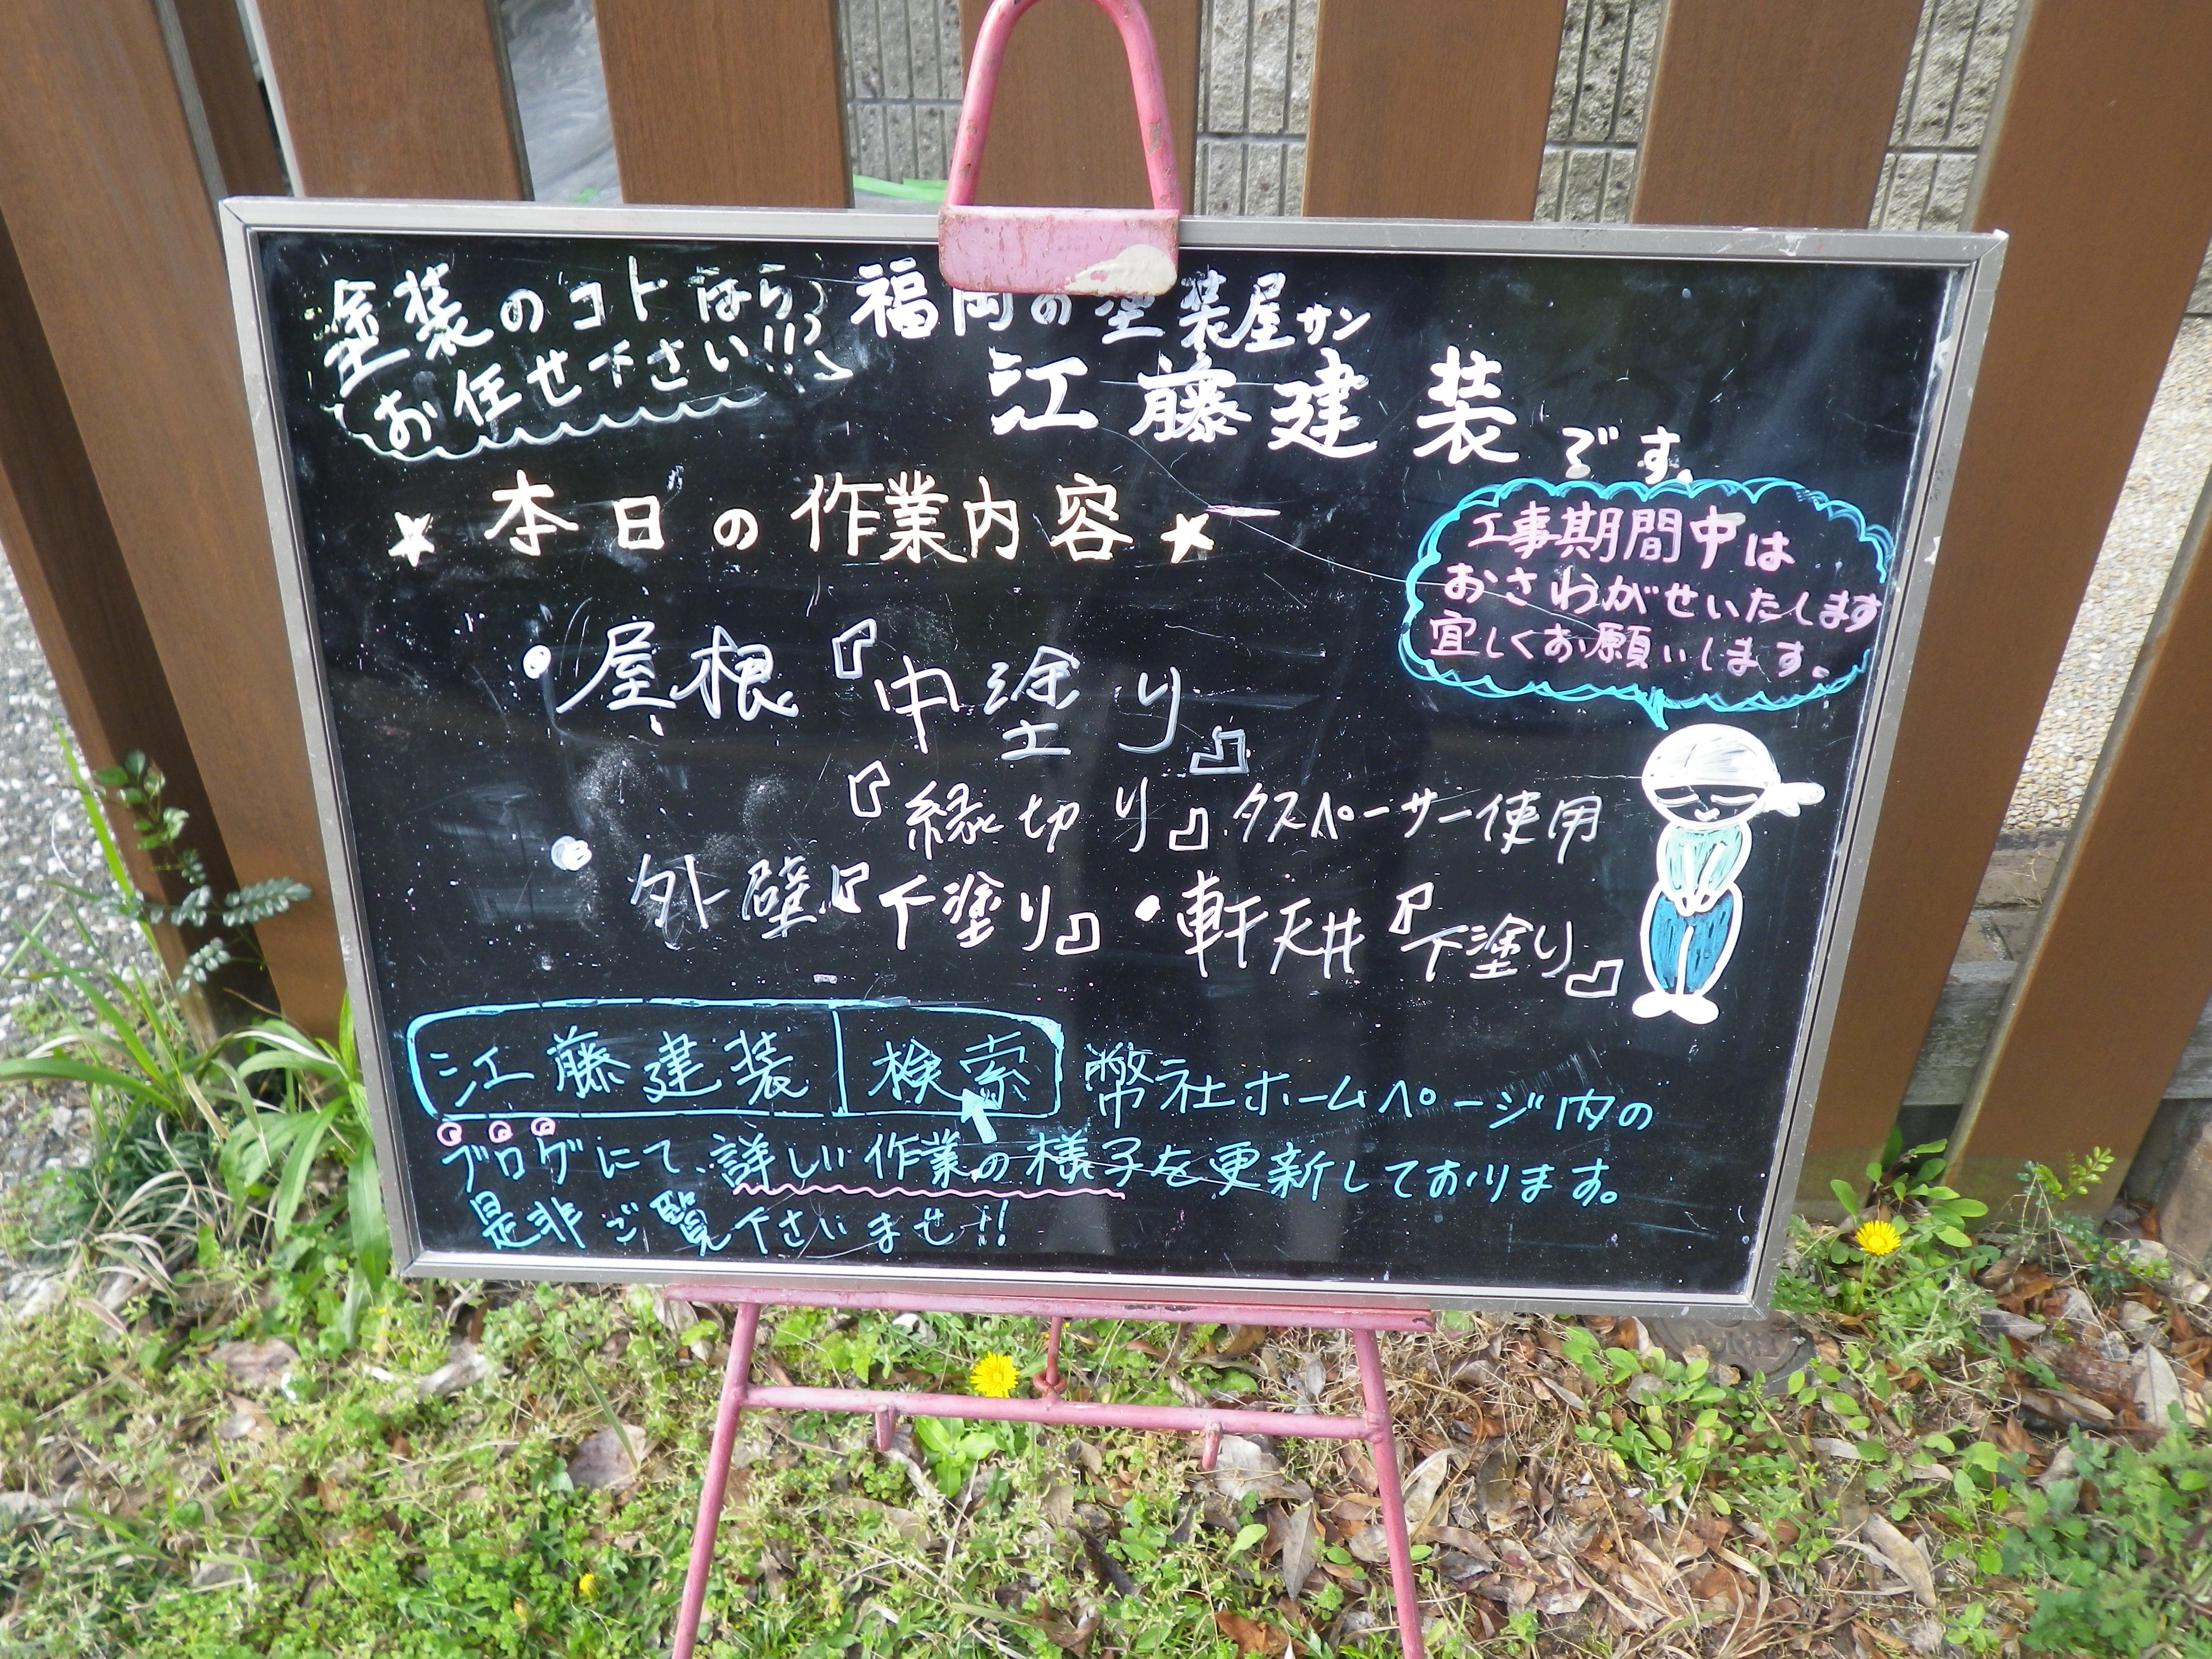 塗装のコトなら
お任せ下さい!!
福岡の塗装屋サン
江藤建装です。
★本日の作業内容★
工事期間中は
おさわがせいたします
宜しくお願いします。
・屋根『中塗り』
『縁切り』タスペーサー使用
・外壁『下塗り』・軒天井『下塗り』
江藤建装 検索 幣社ホームページ内の
ブログにて、詳しい作業の様子を更新しております。
是非ご覧下さいませ!!